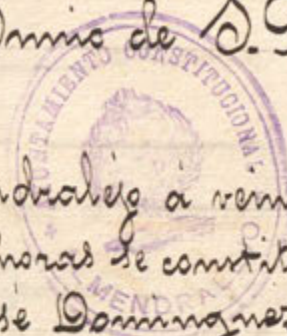 de D.
AYUNTAMIENTO CONSTITUCIONAL
dralejo á vein
horas se constit
sé Dominguez
MENDRAL